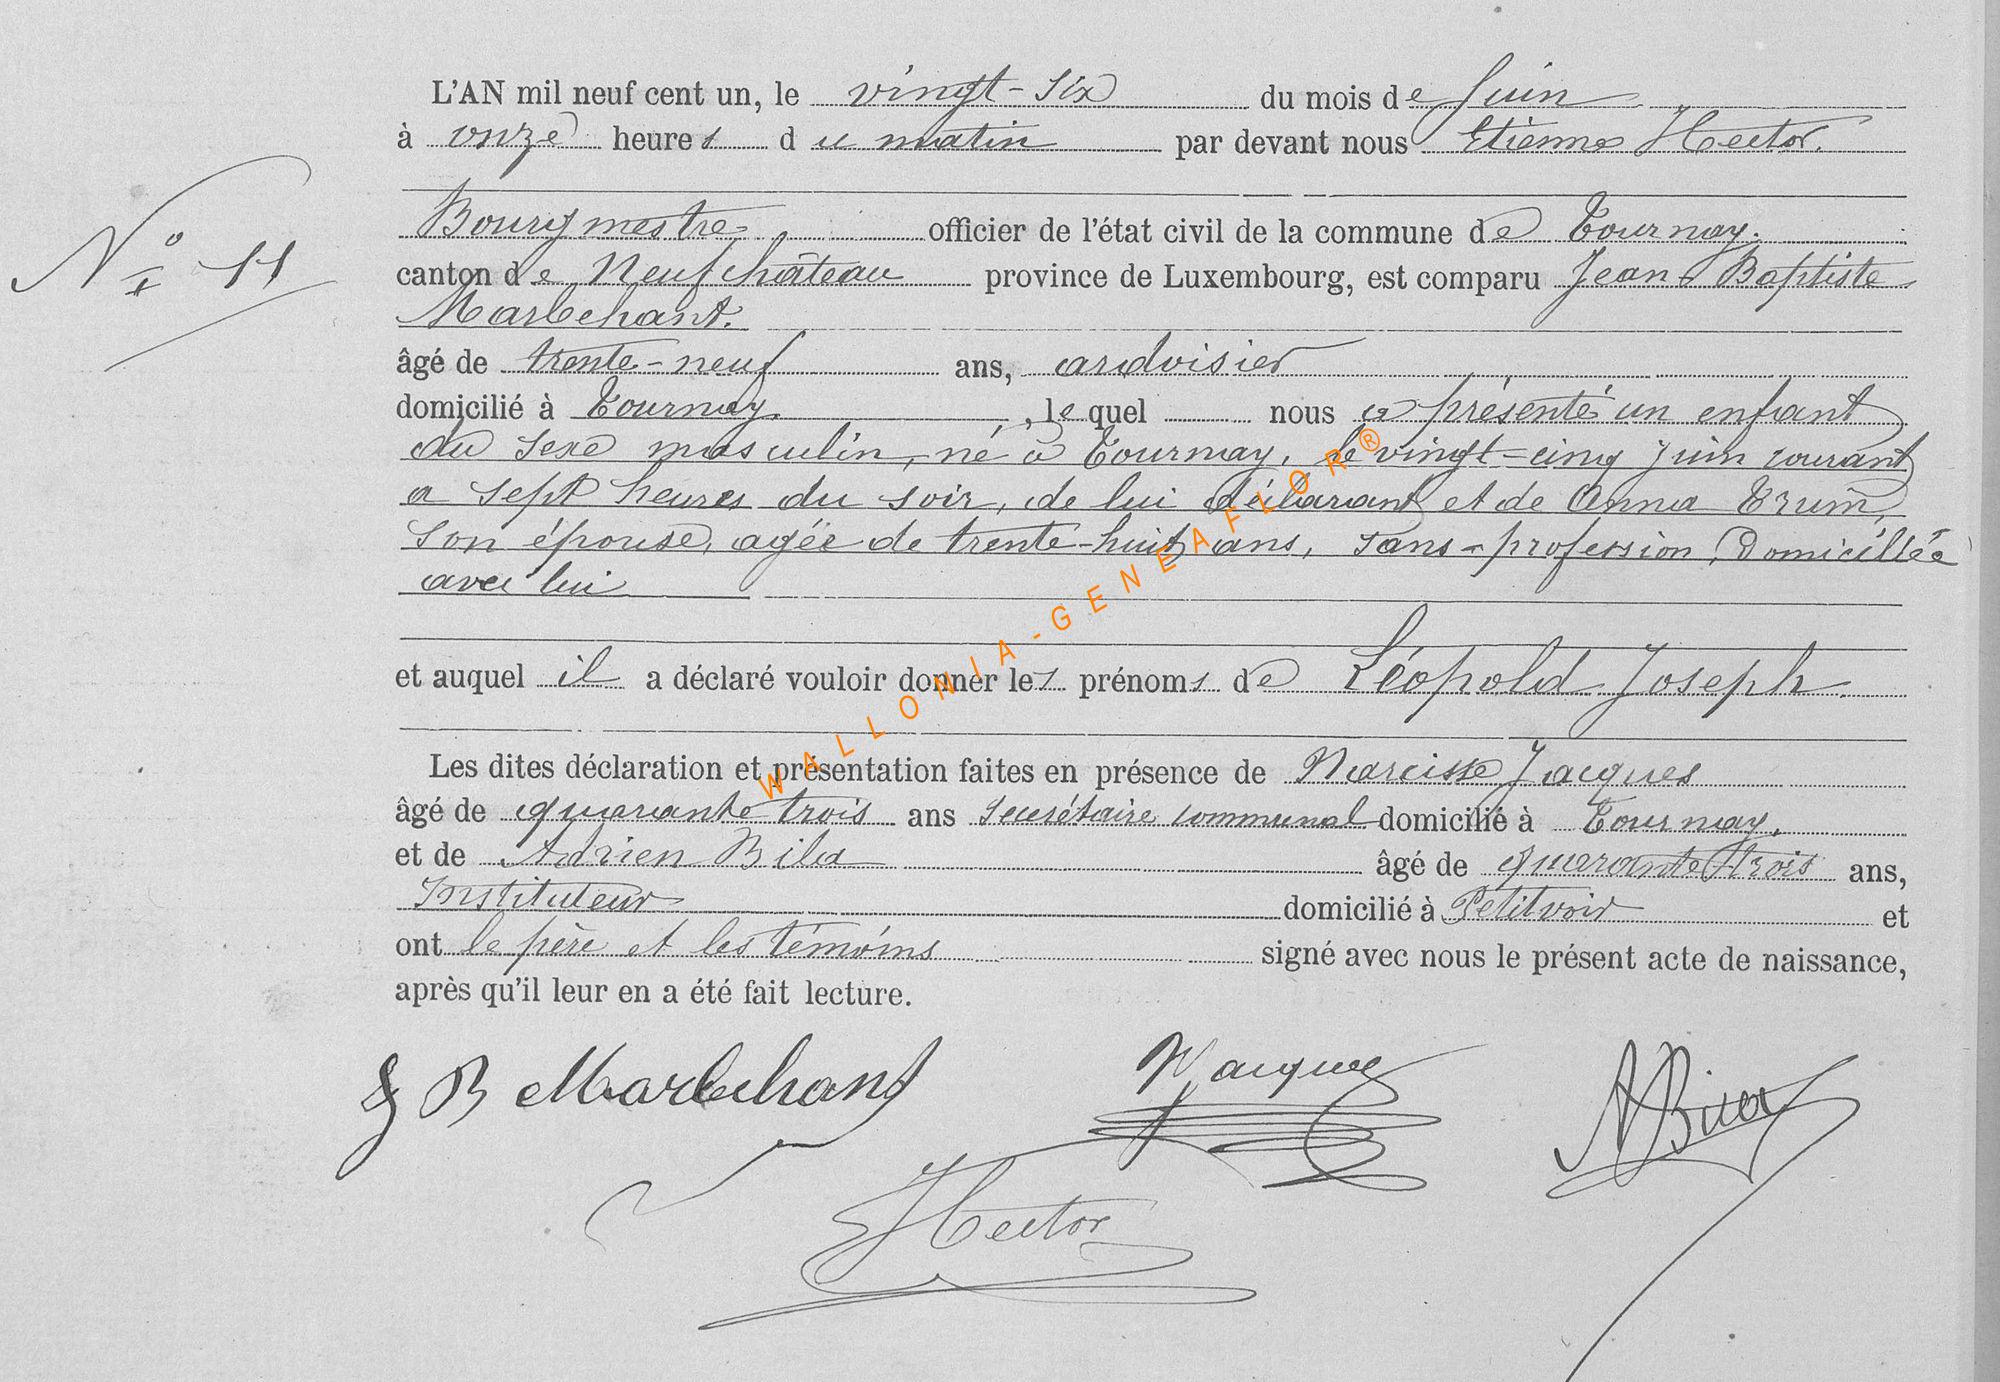 L'AN mil neuf cent un, le vingt-six du mois de Juin
à onze heures du matin par devant nous Etienne Hector.
Bourgmestre officier de l'état civil de la commune de Tournay.
N° 11
canton de Neufchâteau province de Luxembourg, est comparu Jean Baptiste
Marbehant.
âgé de trente-neuf ans, ardoisier
domicilié à Tournay. , lequel nous a présenté un enfant
du sexe masculin, né à Tournay, le vingt-cinq juin courant
a sept heures du soir, de lui déclarant et de Anna
son épouse, agée de trente-huit ans, sans-profession, Domiciliée
avec lui
et auquel il a déclaré vouloir donner les prénoms de Léopold Joseph.
Les dites déclaration et présentation faites en présence de Narcisse Jacques
âgé de quarante trois ans secrétaire communal domicilié à Tournay.
et de Adrien âgé de quarante trois ans,
Instituteur domicilié à Petitvoir et
ont le père et les témoins signé avec nous le présent acte de naissance,
après qu'il leur en a été fait lecture.
J B Marbehant NJacques
Hector
WALLONIA-GENEAFLOR®